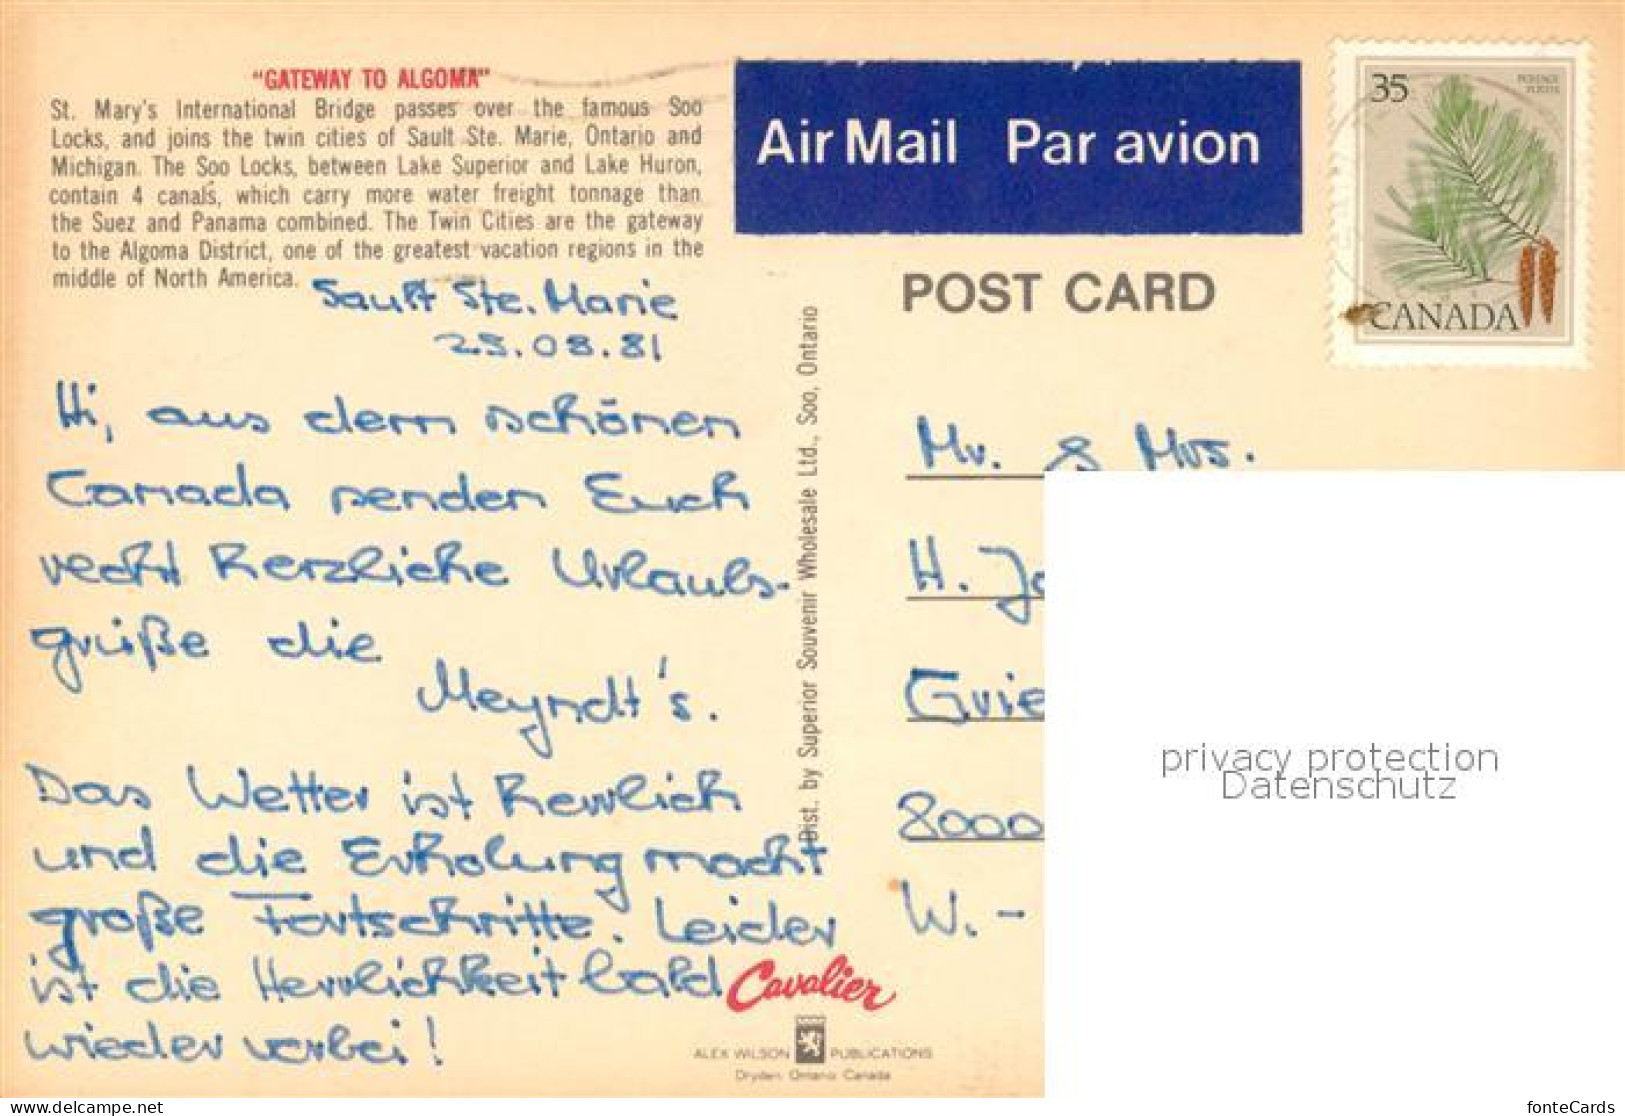 "GATEWAY TO ALGOMA"
St. Mary's International Bridge passes over the famous Soo
Locks, and joins the twin cities of Sault Ste. Marie, Ontario and
Michigan. The Soo Locks, between Lake Superior and Lake Huron,
contain 4 canals, which carry more water freight tonnage than
the Suez and Panama combined. The Twin Cities are the gateway
to the Algoma District, one of the greatest vacation regions in the
middle of North America.
Sault Ste. Marie
25.08.81
Hi, aus dem schönen
Canada senden Euch
recht herzliche Urlaubs-
grüße die
Meyndt's.
Das Wetter ist herrlich
und die Erholung macht
große Fortschritte. Leider
ist die Herrlichkeit bald
wieder vorbei!
Dist. by Superior Souvenir Wholesale Ltd., Soo, Ontario
Cavalier
ALEX WILSON PUBLICATIONS
Dryden Ontario Canada
Air Mail Par avion
35
POSTAGE
POSTES
CANADA
POST CARD
Mr. & Mrs.
H. Jo
Grie
8000
W.-
privacy protection
Datenschutz
https://www.delcampe.net
fonteCards